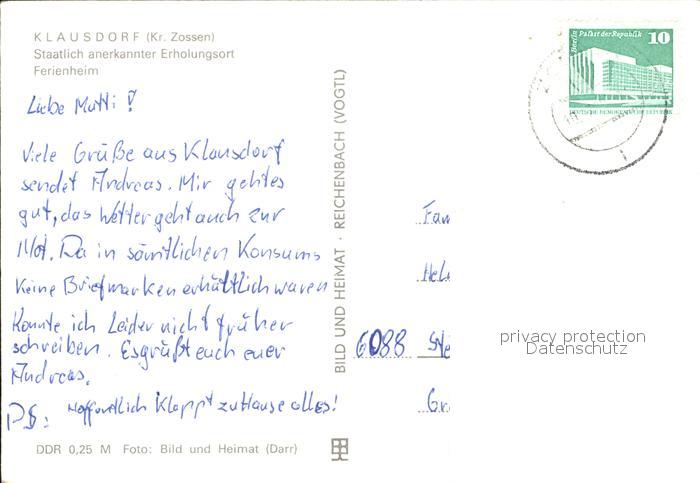 KLAUSDORF (Kr. Zossen)
Staatlich anerkannter Erholungsort
Ferienheim
Liebe Mutti!
Viele Grüße aus Klausdorf
sendet Andreas. Mir gehtes
gut, das Wetter geht auch zur
Not. Da in sämtlichen Konsums
Keine Briefmarken erhältlich waren
Konnte ich Leider nicht früher
schreiben. Es grüßt euch euer
Andreas.
PS: Hoffentlich Klappt zuHause alles!
DDR 0,25 M Foto: Bild und Heimat (Darr)
BILD UND HEIMAT · REICHENBACH (VOGTL)
Berlin Palast der Republik 10
DEUTSCHE DEMOKRATISCHE REPUBLIK
Fam
6088
privacy protection
Datenschutz